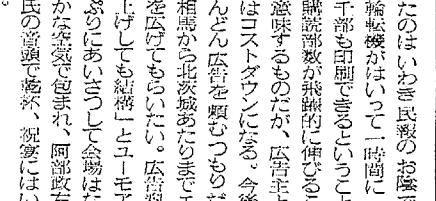 たのはいわき民報のお陰で
輪転機がはいって一時間に
千部も印刷できるということ
購読部数が飛躍的に伸びるこ
意味するものだが、広告主と
はコストダウンになる。今後
んどん広告を頼むつもりだ
相馬から北茨城あたりまでエ
を広げてもらいたい。広告料
上げしても結構」とユーモア
ぷりにあいさつして会場はな
かな空気で包まれ、阿部政右
民の音頭で乾杯、祝宴にはい